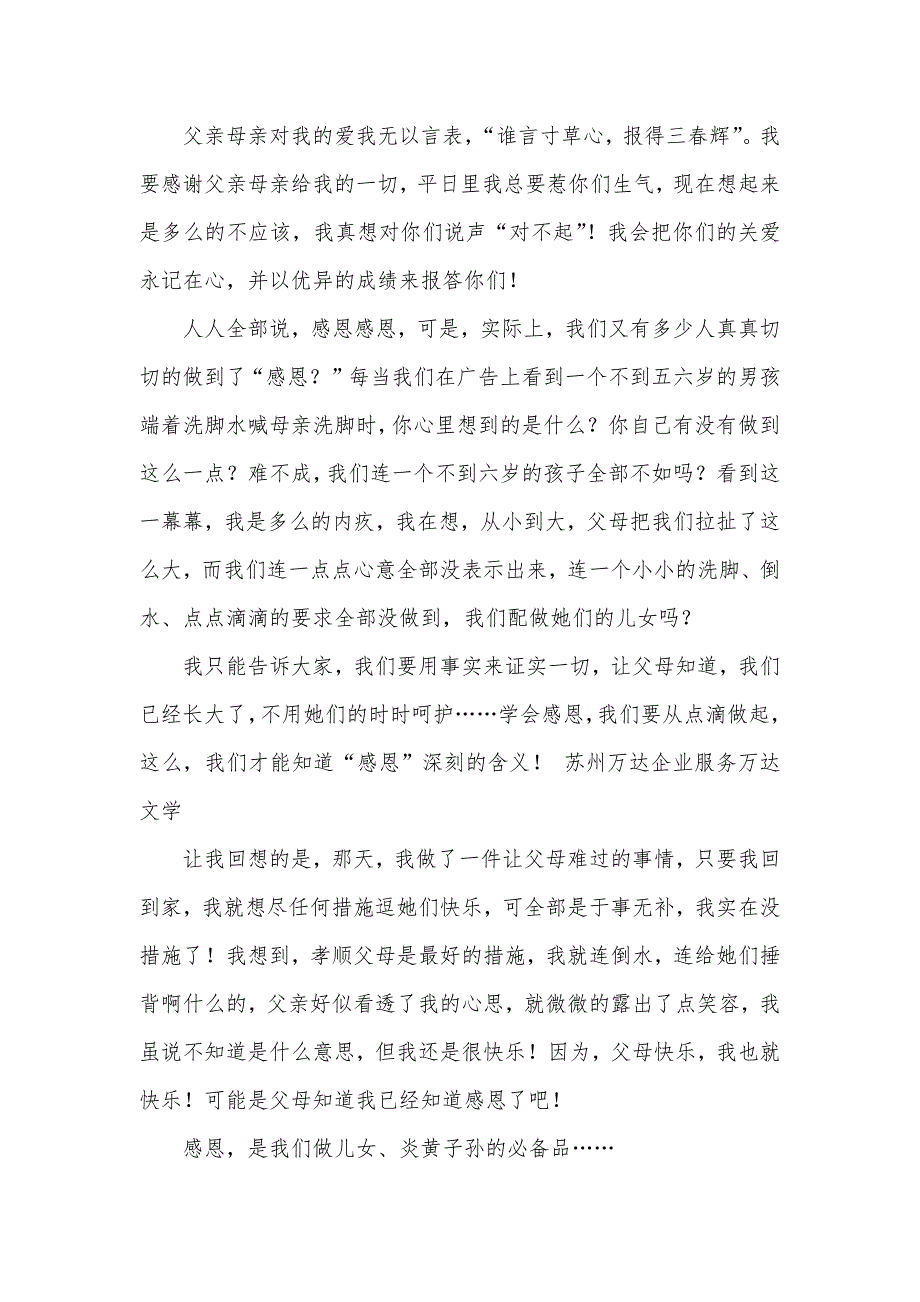 父亲母亲对我的爱我无以言表，“谁言寸草心，报得三春辉”。我
要感谢父亲母亲给我的一切，平日里我总要惹你们生气，现在想起来
是多么的不应该，我真想对你们说声“对不起”！我会把你们的关爱
永记在心，并以优异的成绩来报答你们！
人人全部说，感恩感恩，可是，实际上，我们又有多少人真真切
切的做到了“感恩？”每当我们在广告上看到一个不到五六岁的男孩
端着洗脚水喊母亲洗脚时，你心里想到的是什么？你自己有没有做到
这么一点？难不成，我们连一个不到六岁的孩子全部不如吗？看到这
一幕幕，我是多么的内疚，我在想，从小到大，父母把我们拉扯了这
么大，而我们连一点点心意全部没表示出来，连一个小小的洗脚、倒
水、点点滴滴的要求全部没做到，我们配做她们的儿女吗？
我只能告诉大家，我们要用事实来证实一切，让父母知道，我们
已经长大了，不用她们的时时呵护……学会感恩，我们要从点滴做起，
这么，我们才能知道“感恩”深刻的含义！ 苏州万达企业服务万达
文学
让我回想的是，那天，我做了一件让父母难过的事情，只要我回
到家，我就想尽任何措施逗她们快乐，可全部是于事无补，我实在没
措施了！我想到，孝顺父母是最好的措施，我就连倒水，连给她们捶
背啊什么的，父亲好似看透了我的心思，就微微的露出了点笑容，我
虽说不知道是什么意思，但我还是很快乐！因为，父母快乐，我也就
快乐！可能是父母知道我已经知道感恩了吧！
感恩，是我们做儿女、炎黄子孙的必备品……